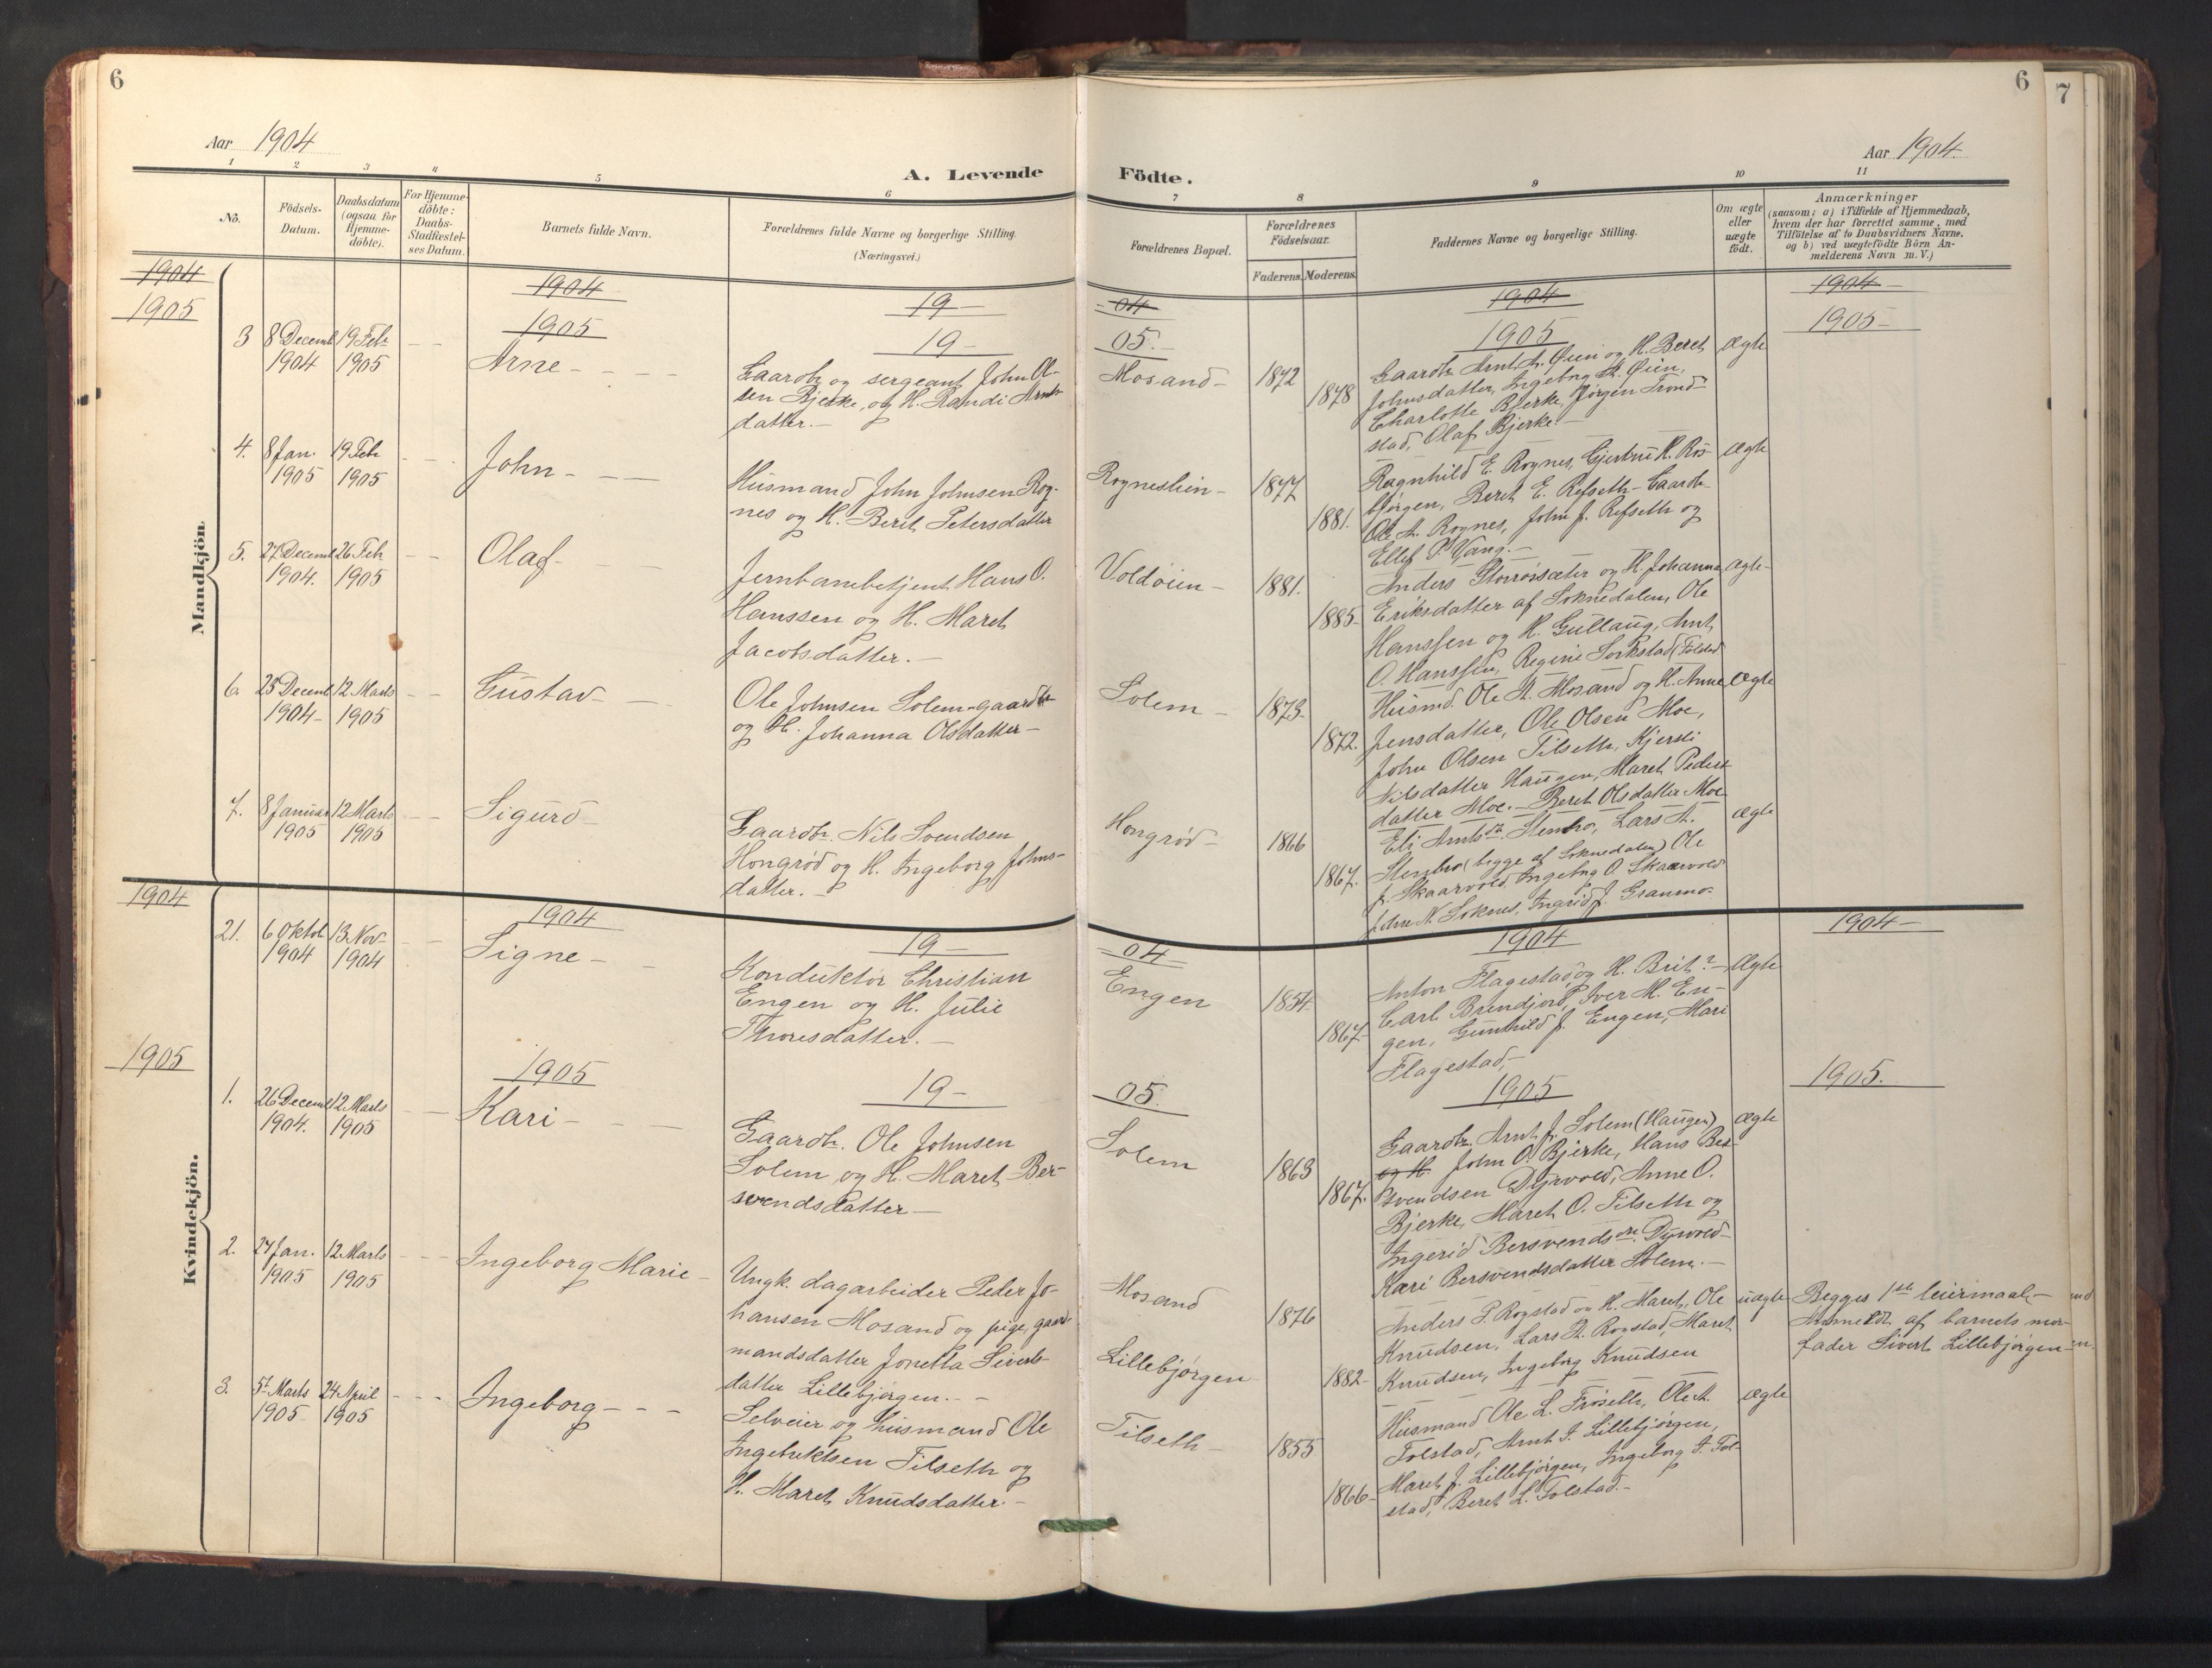 6
6
7
Aar 1904
Aar 1904.
A. Levende Födte.
1 2 3 4 5 6 7 8 9 10 11
No.
Födsels-
Datum.
Daabsdatum
(ogsaa for
Hjemme-
döbte).
For Hjemme-
döbte:
Daabs-
Stadfæstel-
ses Datum.
Barnets fulde Navn.
Forældrenes fulde Navne og borgerlige Stilling.
(Næringsvei.)
Forældrenes Bopæl.
Forældrenes
Födselsaar.
Faderens. Moderens.
Faddernes Navne og borgerlige Stilling.
Om ægte
eller
uægte
födt.
Anmærkninger
(saasom: a) i Tilfælde af Hjemmedaab,
hvem der har forrettet samme, med
Tilföielse af to Daabsvidners Navne,
og b) ved uægtefödte Börn An-
melderens Navn m. V.)
Mandkjön
1904 1904 19- -04 1904 1904-
1905 1905 19- 05.- 1905 1905-
3 8 Decemb 1904 19 Feb 1905
Arne
Gaardbr. og sergeant John Ol-
sen Bjerke, og H. Randi Arnts-
datter.-
Mosand-
1872
1878
Gaardbr. Arnt A. Øien og H. Beret
Johnsdatter, Ingebrg A. Øien,
Charlotte Bjerke, Jørgen Trond-
stad, Olaf Bjerke.-
Ægte
4. 8 Jan. 1905 19 Feb 1905
John-
Husmand John Johnsen Rog-
nes og H. Berit Petersdatter
Rogneslien-
1877
1881.
Ragnhild E. Rognes, Gjertru H. Ros-
bjørgen, Beret E. Refseth- Gaardbr.
Ole A. Rognes, John J. Refseth og
Ellef P. Vang.-
Ægte
5. 27 Decemb 1904. 26 Feb 1905
Olaf-
Jernbanebetjent Hans O.
Hanssen og H. Maret
Jacobsdatter.-
Voldøien-
1881.
1885-
Anders Storrøsæter og H. Johanna
Eriksdatter af Soknedalen, Ole
Hanssen og H. Gullaug, Arnt
O. Hanssen, Regine Sokstad
Ægte-
6. 25 Decemb 1904- 12 Marts 1905
Gustav-
Ole Johnsen Solem-gaardbr
og H. Johanna Olsdatter-
Solem-
1873-
1872.
Husmd. Ole A. Mosand og H. Anne
Jensdatter, Ole Olsen Moe,
John Olsen Tilseth, Kjersti
Nilsdatter Haugen, Maret Peders-
datter Moe.- Beret Olsdatter Moe
Ægte
7. 8 Januar 1905 12 Marts 1905
Sigurd-
Gaardbr. Nils Svendsen
Hongrød og H. Ingeborg Johns-
datter.-
Hongrød-
1866
1867.
Eli Arntsdr. Stenbro, Lars A.
Stenbro (begge af Soknedalen) Ole
J. Skaarvold, Ingebrg O. Skaarvold
John N. Soknes, Ingrid J. Granmo-
ægte
Kvindekjön.
1904 1904 19- 04- 1904 1904-
21. 6 Oktob 1904 13 Nov- 1904
Signe-
Konduktör Christian
Engen og H. Julie
Thoresdatter.-
Engen
1854.
1867-
Anton Flagestad og H. Brit?-
Carl Brendjord, Iver M. En-
gen, Gunhild J. Engen, Mari
Flagestad,-
Ægte
1905 1905 19- 05. 1905 1905.
1. 26 Decemb 1904. 12 Marts 1905
Kari-
Gaardbr. Ole Johnsen
Solem og H. Maret Ber-
svendsdatter-
Solem
1863
1867.
Gaardbr. Arnt J. Solem (Haugen)
og H John O. Bjerke, Hans Ber-
svendsen Dyrvold, Anne O.
Bjerke, Maret O. Tilseth og
Ingerid Bersvendsdtr. Dyrvold-
Kari Bersvendsdatter Solem.-
ægte
2. 27 Jan. 1905 12 Marts 1905
Ingeborg Marie-
Ungk. dagarbeider Peder Jo-
hansen Mosand og pige, gaard-
mandsdatter Jonetta Siverts-
datter Lillebjørgen.-
Mosand
Lillebjørgen
1876
1882-
Anders P. Rogstad og H. Maret, Ole
Knudsen, Lars A. Rogstad, Maret
Knudsen, Ingeborg Knudsen
uægte
Begges 1ste leiermaal-
Anmeldt af barnets mor-
fader Sivert Lillebjørgen-
3. 5te Marts 1905 24 April 1905
Ingeborg-
Selveier og husmand Ole
Ingebrektsen Tilseth og
H. Maret Knudsdatter.-
Tilseth-
1855
1866-
Husmand Ole L. Frøseth, Ole A.
Folstad, Arnt A. Lillebjørgen,
Maret J. Lillebjørgen, Ingeborg A. Fol-
stad, Beret L. Folstad.-
ægte